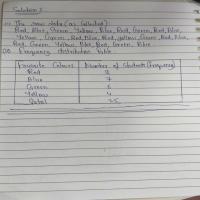 Solution :
(i) The raw data (as collected):
Red, Blue, Green, Yellow, Blue, Red, Green, Red, Blue,
Yellow, Green, Red, Blue, Red, Yellow, Green, Red, Blue,
Red, Green, Yellow, Blue, Red, Green, Blue.
(ii) Frequency distribution table
Favourite Colours Number of Students (Frequency)
Red 8
Blue 7
Green 6
Yellow 4
Total 25